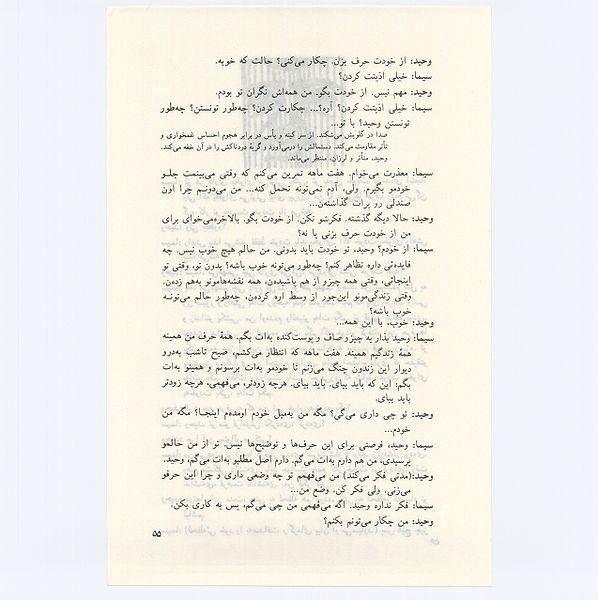 وحید: از خودت حرف بزن. چکار می‌کنی؟ حالت که خوبه.
سیما: خیلی اذیتت کردن؟
وحید: مهم نیس. از خودت بگو. من همه‌اش نگران تو بودم.
سیما: خیلی اذیتت کردن؟ آره؟... چکارت کردن؟ چه‌طور تونستن؟ چه‌طور
تونستن وحید؟ با تو...
صدا در گلویش می‌شکند. از سر کینه و یأس در برابر هجوم احساس غمخواری و
تأثر مقاومت می‌کند. دستمالش را درمی‌آورد و گریهٔ دردناکش را در آن خفه می‌کند.
وحید، متأثر و لرزان، منتظر می‌ماند.
سیما: معذرت می‌خوام. هفت ماهه تمرین می‌کنم که وقتی می‌بینمت جلو
خودمو بگیرم. ولی، آدم نمی‌تونه تحمل کنه... من می‌دونم چرا اون
صندلی رو برات گذاشته‌ن...
وحید: حالا دیگه گذشته. فکرشو نکن. از خودت بگو. بالاخره‌می‌خوای برای
من از خودت حرف بزنی یا نه؟
سیما: از خودم؟ وحید، تو خودت باید بدونی. من حالم هیچ خوب نیس. چه
فایده‌ئی داره تظاهر کنم؟ چه‌طور می‌تونه خوب باشه؟ بدون تو، وقتی تو
اینجائی، وقتی همه چیزو از هم پاشیده‌ن، همه نقشه‌هامونو به‌هم زده‌ن.
وقتی زندگی‌مونو این‌جور از وسط اره کرده‌ن، چه‌طور حالم می‌تونه
خوب باشه؟
وحید: خوب، با این همه...
سیما: وحید بذار یه چیزو صاف و پوست‌کنده به‌ات بگم. همهٔ حرف من همینه
همهٔ زندگیم همینه. هفت ماهه که انتظار می‌کشم، صبح تاشب به‌درو
دیوار این زندون چنگ می‌زنم تا خودمو به‌ات برسونم و همینو به‌ات
بگم: این که باید بیای. باید بیای. هرچه زودتر، می‌فهمی، هرچه زودتر
باید بیای.
وحید: تو چی داری می‌گی؟ مگه من به‌میل خودم اومده‌م اینجا؟ مگه من
خودم...
سیما: وحید، فرصتی برای این حرف‌ها و توضیح‌ها نیس. تو از من حالمو
پرسیدی، من هم دارم به‌ات می‌گم. دارم اصل مطلبو به‌ات می‌گم، وحید.
وحید:(مدتی فکر می‌کند) من می‌فهمم تو چه وضعی داری و چرا این حرفو
می‌زنی. ولی فکر کن. وضع من...
سیما: فکر نداره وحید. اگه می‌فهمی من چی می‌گم، پس یه کاری بکن.
وحید: من چکار می‌تونم بکنم؟
۵۵